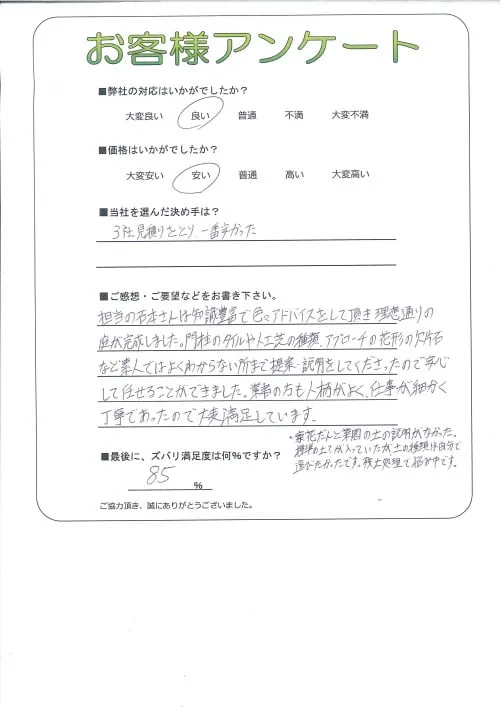 お客様アンケート
■弊社の対応はいかがでしたか？
大変良い 良い 普通 不満 大変不満
■価格はいかがでしたか？
大変安い 安い 普通 高い 大変高い
■当社を選んだ決め手は？
3社見積りをとり、一番安かった
■ご感想・ご要望などをお書き下さい。
担当の石本さんは知識豊富で色々アドバイスをして頂き理想通りの
庭が完成しました。門柱のタイルや人工芝の種類、アプローチの花形の欠片石
など素人ではよくわからない所まで提案・説明をしてくださったので安心
して任せることができました。業者の方も人柄がよく、仕事が細かく
丁寧であったので大変満足しています。
・家花だんと菜園の土の説明がなかった。
標準の土が入っていたが土の種類は自分で
選びたかったです。残土処理で悩み中です。
■最後に、ズバリ満足度は何％ですか？
85 %
ご協力頂き、誠にありがとうございました。